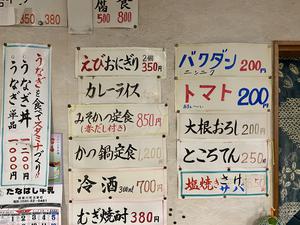 腐食
500 800
うなぎを食べてスタミナづくり!!
うなぎ丼
うなぎ単品
えびおにぎり 2個 350円
カレーライス
みそかつ定食 850円
(赤だし付き)
かつ鍋定食 1,200
冷酒 300ml 700円
むぎ焼酎 380円
バクダン 200円
ニンニク
トマト 200円
大根おろし 200円
ところてん 250円
塩焼き
たなはし牛乳